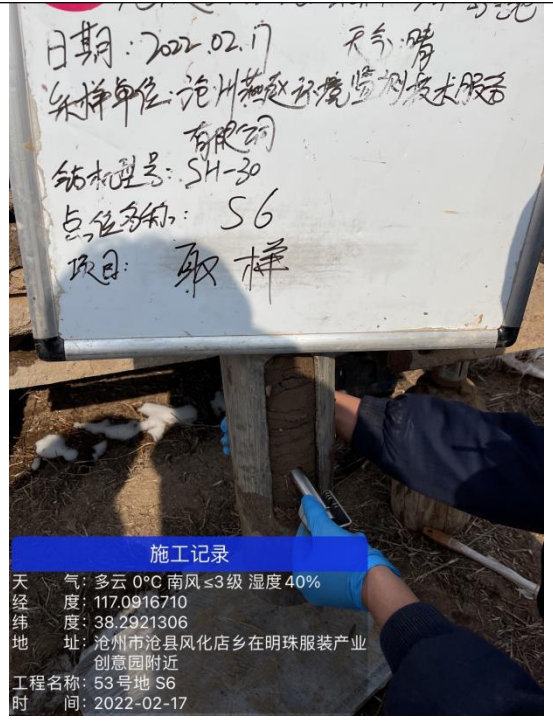 日期：2022.02.17 天气：晴
采样单位：沧州燕赵环境监测技术服务
有限公司
钻机型号：SH-30
点位名称：S6
项目：取样
施工记录
天 气：多云 0°C 南风≤3级 湿度40%
经 度：117.0916710
纬 度：38.2921306
地 址：沧州市沧县风化店乡在明珠服装产业
创意园附近
工程名称：53号地 S6
时 间：2022-02-17